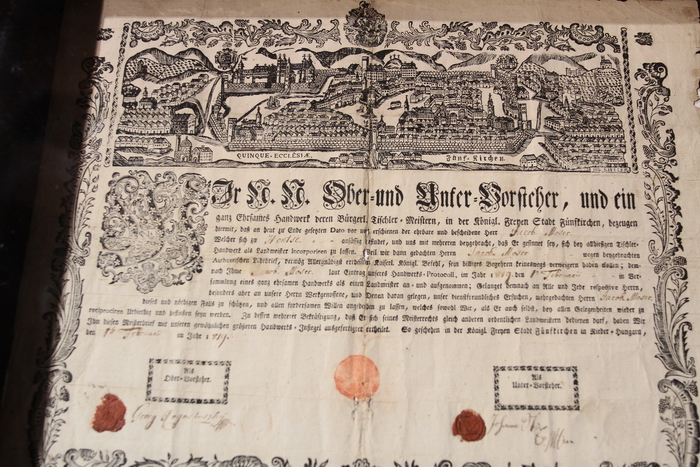 QUINQUE-ECCLESIÆ.
Fünf-Kirchen.
Wir N. N. Ober-und Unter-Vorsteher, und ein
ganz Ehrsames Handwerk deren Bürgerl. Tischler-Meistern, in der Königl. Freyen Stadt Fünfkirchen, bezeugen
hiermit, daß an heut zu Ende gesetzten Dato vor uns erschienen der ehrbare und bescheidene Herr Jacob Moser
Welcher sich zu ansäßig befindet, und uns mit mehreren beygebracht, daß Er gesinnet sey, sich bey allhiesigen Tischler-
Handwerk als Landmeister incorporiren zu lassen. Weil wir dann gedachten Herrn Jacob Moser wegen beygebrachten
Authentischen Lehrbrief, vermög Allergnädigst ertheilten Kaiserl. Königl. Befehl, sein billiges Begehren keineswegs verweigern haben wollen; dem-
nach Ihne Jacob Moser laut Eintrag unsers Handwerks-Protocoll, im Jahr 1819 in Ver-
sammlung eines ganz ehrsamen Handwerks als einen Landmeister an- und aufgenommen; Gelanget demnach an Alle und Jede respective Herrn,
besonders aber an unsere Herrn Werkgenossene, und Denen daran gelegen, unser dienstfreundliches Ersuchen, mehrgedachten Herrn Jacob Moser
dieses und nöthigen Falls zu schützen, und allen fordersamen Willen angedeihen zu lassen, welches sowohl Wir, als Er auch selbst, bey allen Gelegenheiten wieder zu
Urkundlich dessen mehrer Bekräftigung, daß Er sich seines Meisterrechts gleich anderen ordentlichen Landmeistern bedienen darf, haben Wir
Ihn diesen Meisterbrief mit unseren gewöhnlichen größeren Handwerks-Insiegel ausgefertigter ertheilet. So geschehen in der Königl. Freyen Stadt Fünfkirchen in Nieder-Hungarn,
den im Jahr 1819.
Als
Ober-Vorsteher.
Als
Unter-Vorsteher.